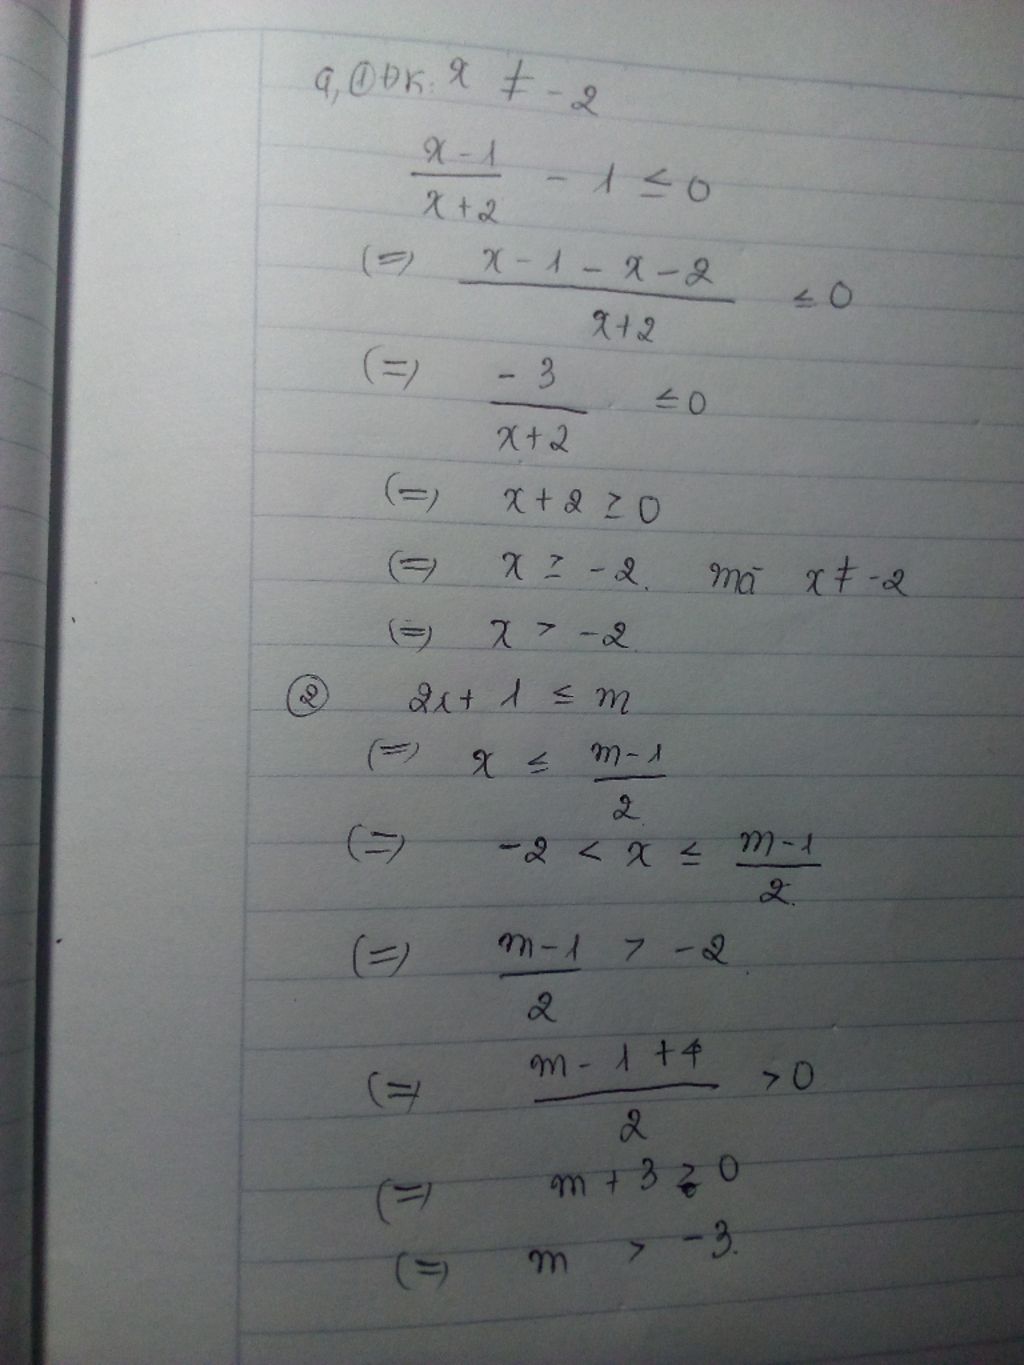 a, ① ĐK: x ≠ -2
x-1 / x+2 - 1 ≤ 0
(=) x - 1 - x - 2 / x+2 ≤ 0
(=) -3 / x+2 ≤ 0
(=) x + 2 ≥ 0
(=) x ≥ -2. mà x ≠ -2
(=) x > -2
② 2x + 1 ≤ m
(=) x ≤ m-1 / 2
(=) -2 < x ≤ m-1 / 2.
(=) m-1 / 2 > -2
(=) m - 1 + 4 / 2 > 0
(=) m + 3 > 0
(=) m > -3.